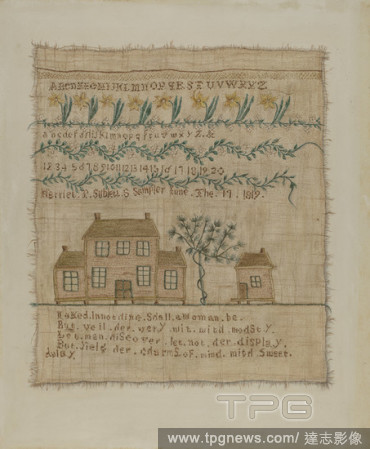 ABCDEFGHIJKLMNOPQRSTUVWXYZ
abcdefghijklmnopqrstuvwxyz.&
12 3 4 5 6 7 8 9 10 11 12 13 14 15 16 17 18 19 20
Harriet. S Sampler June. The. 17. 1819.
Naked. Shall. a Woman. be.
veil. der. wit. with modsty.
man. discover. let. not. der display.
But. yield der. of. mind. mord Sweet.
TPG
www.tpgnews.com / 達志影像